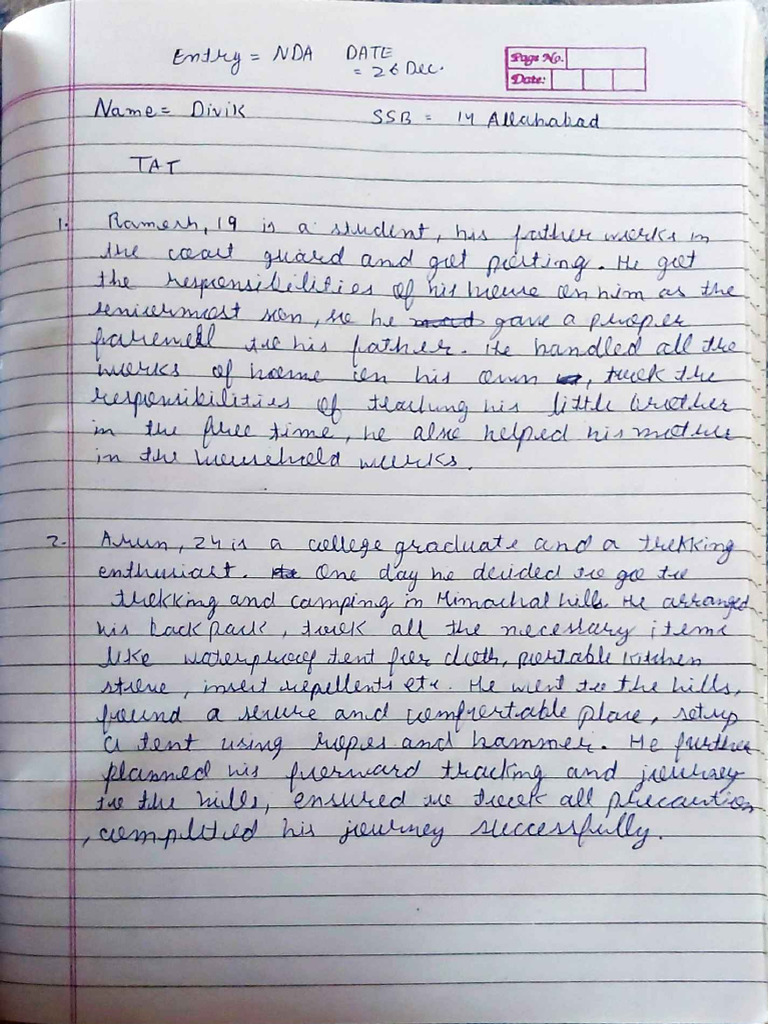 Entry = NDA DATE
= 26 Dec.
Page No.
Date:
Name = Divik SSB = 14 Allahabad
TAT
1. Ramesh, 19 is a student, his father works in
the coast guard and got posting. He got
the responsibilities of his house on him as the
seniormost son, so he gave a proper
farewell to his father. He handled all the
works of home on his own, took the
responsibilities of teaching his little brother
in the free time, he also helped his mother
in the household works.
2. Arun, 24 is a college graduate and a trekking
enthusiast. One day he decided to go to
trekking and camping in Himachal hills. He arranged
his back pack, took all the necessary items
like waterproof tent fier cloth, portable kitchen
stove, insect repellents etc. He went to the hills,
found a secure and comfortable place, setup
a tent using ropes and hammer. He further
planned his forward tracking and journey
to the hills, ensured to took all precaution
, completed his journey successfully.